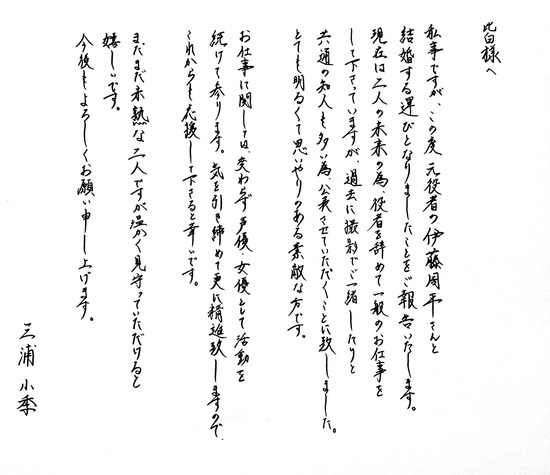 皆様へ
私事ですが、この度 元役者の伊藤周平さんと
結婚する運びとなりましたことをご報告いたします。
現在は二人の未来の為、役者を辞めて一般のお仕事を
して下さっていますが、過去に撮影でご一緒したりと
共通の知人も多い為、公表させていただくことに致しました。
とても明るくて思いやりのある素敵な方です。
お仕事に関しては、変わらず声優・女優として活動を
続けて参ります。気を引き締めて更に精進致しますので、
これからも応援して下さると幸いです。
まだまだ未熟な二人ですが温かく見守っていただけると
嬉しいです。
今後もよろしくお願い申し上げます。
三浦 小季